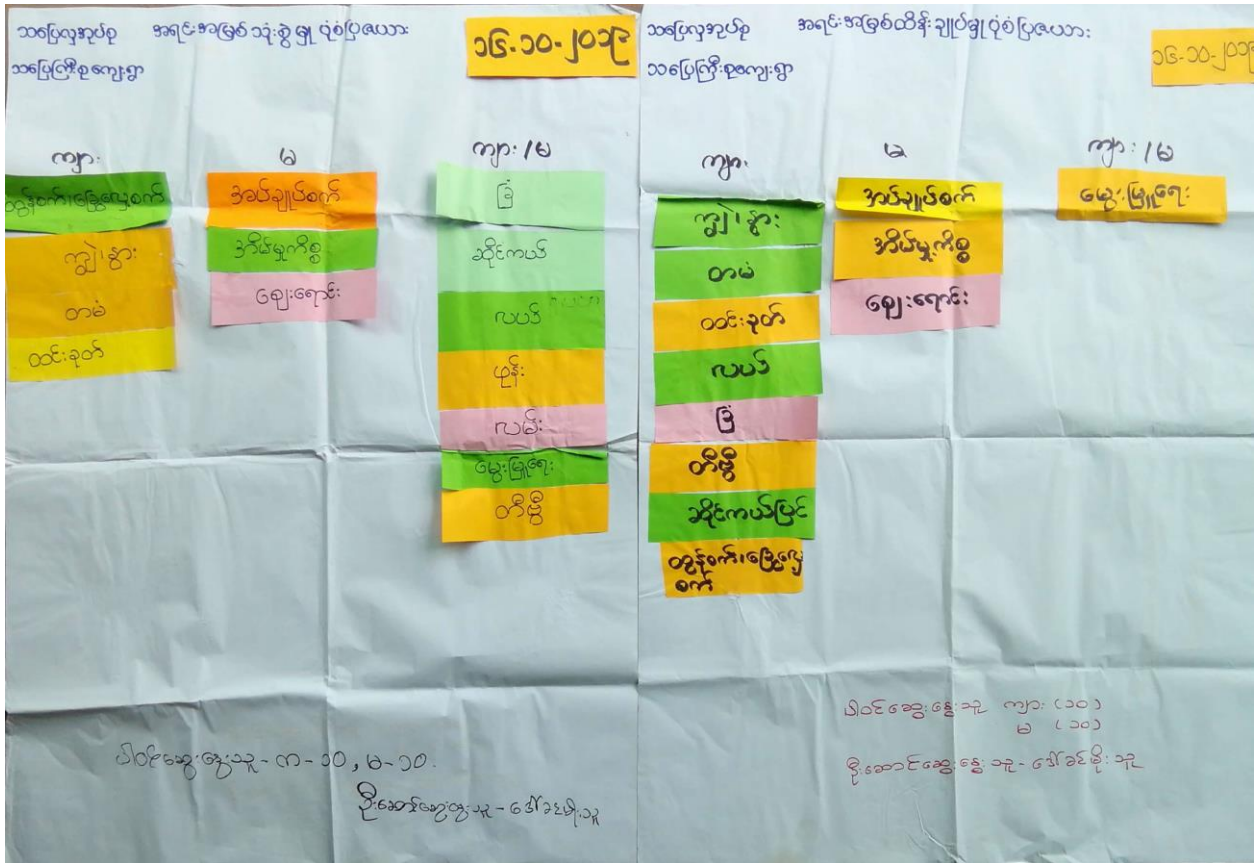 သပြေလှအုပ်စု အရင်းအမြစ်သုံးစွဲမှု ပုံစံပြဇယား
၁၆-၁၀-၂၀၁၉
သပြေကြီးစုကျေးရွာ
ကျား
ထွန်စက်၊ခြွေလှေ့စက်
ကျွဲ၊နွား
တမံ
ထင်းခုတ်
မ
အပ်ချုပ်စက်
အိမ်မှုကိစ္စ
ဈေးရောင်း
ကျား/မ
ခြံ
ဆိုင်ကယ်
လယ်
ဖုန်း
လမ်း
မွေးမြူရေး
တီဗွီ
ပါဝင်ဆွေးနွေးသူ-ကာ-၁၀, မ-၁၀.
ဦးဆောင်ဆွေးနွေးသူ-ဒေါ်ခင်မိုးသူ
သပြေလှအုပ်စု အရင်းအမြစ်ထိန်းချုပ်မှုပုံစံပြဇယား
၁၆-၁၀-၂၀၁၉
သပြေကြီးစုကျေးရွာ
ကျား
ကျွဲ၊နွား
တမံ
ထင်းခုတ်
လယ်
ခြံ
တီဗွီ
ဆိုင်ကယ်ပြင်
ထွန်စက်၊ခြွေလှေ့
စက်
မ
အပ်ချုပ်စက်
အိမ်မှုကိစ္စ
ဈေးရောင်း
ကျား/မ
မွေးမြူရေး
ပါဝင်ဆွေးနွေးသူ ကျား (၁၀)
မ (၁၀)
ဦးဆောင်ဆွေးနွေးသူ-ဒေါ်ခင်မိုးသူ